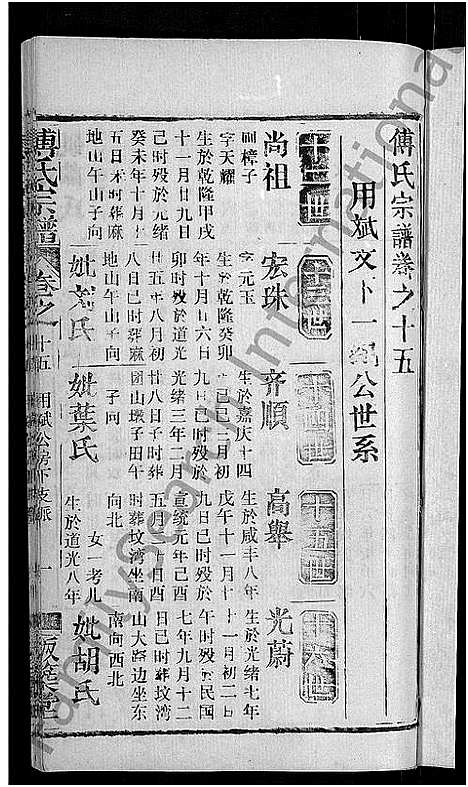 傅氏宗譜卷之十五
用斌文卜一公世系
十二世
尚祖
樟子
字天耀
生於乾隆甲戌
十一月廿九日
己時歿於光緒
癸未年十月十
五日未時葬麻
地山午山子向
十三世
宏珠
字元玉
生於乾隆癸卯
年十月廿六日
卯時歿於道光
廿五年八月初
八日巳時葬麻
地山午山子向
妣氏
十四世
齊順
生於嘉庆十四
年己巳三月初
九日巳時歿於
光緒三年二月
廿八日子時葬
團山墩子田午
子向
妣葉氏
十五世
高舉
生於咸丰八年
戊午十一月十
九日巳時歿於
宣统元年己酉
五月廿日酉
時葬坟湾坐南
向北
女一考儿
生於道光八年
十六世
光蔚
生於光緒七年
十一月初二日
午時歿於民国
七年九月十二
日巳時葬坟湾
山大路边坐东
南向西北
妣胡氏
傅氏宗譜
卷之十五
用斌公房下支派
一
版築堂
familysearch international